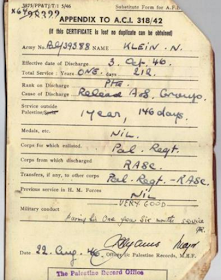 5673/PPATJ-T/ 5/46 Substitute Form for A.F.
APPENDIX TO A.C.I. 318/42
(If this CERTIFICATE is lost no duplicate can be obtained)
Army No. NAME KLEIN - N.
Effective date of Discharge 3 Oct. 46.
Total Service: Years ONE. days 212.
Rank on Discharge PTE
Cause of Discharge Release
Service outside 1 year, 146 days.
Medals, etc. NIL.
Corps for which enlisted Pal. Regt.
Corps from which discharged RASC.
Transfers, if any, to other corps Pal-Regt.-RASC
Previous service in H. M. Forces NIL
VERY GOOD
Military conduct
One Year Six months
Major
Date 22 Aug. 46. Palestine Records, M.E.F.
The Palestine Record Office